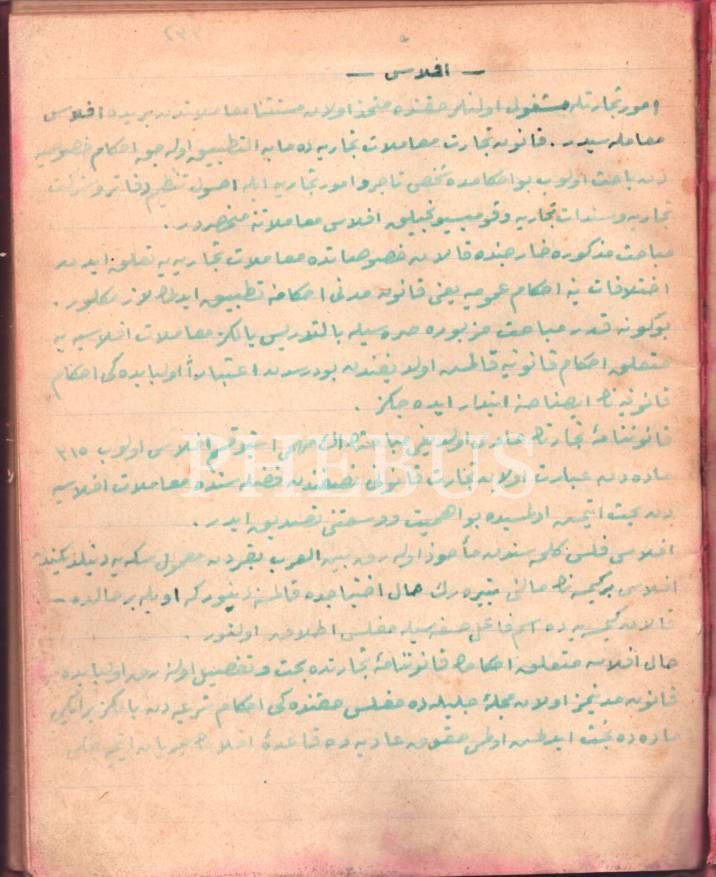 — افلاس —
امور تجارتله مشغول اولنلر حقنده متخذ اولان مستثنا معاملاتدن بریده افلاس
معامله سیدر . قانون تجارت معاملات تجاریه ده مابه التطبیق اوله جق احکام خصوصیه
دن باحث اولوب بو احکامده شخص تاجر و امور تجاریه ایله اصول تنظیم دفاتر و شرکات
تجاریه و سندات تجاریه و قومیسیونجیلق افلاس معاملاتنه منحصردر .
مباحث مذکوره خارجنده قالان خصوصاتده معاملات تجاریه یه تعلق ایدن
اختلافات ینه احکام عمومیه یعنی قانون مدنی احکامنه تطبیق ایدلمك لازم کلور .
بوکونه قدر مباحث مزبوره صره سیله بالتدریس یالکز معاملات افلاسیه یه
متعلق احکام قانونیه قالمش اولدیغندن بو درسدن اعتباراً اولبابده کی احکام
قانونیه نك ایضاحنه ابتدار ایده جکز .
قانوننامهٔ تجارتك حاوی اولدیغی مباحثك اك مهمی افلاس اولوب ٣١٥
ماده دن عبارت اولان تجارت قانونی نصفندن فضله سنده معاملات افلاسیه
دن بحث ایتمش اولمسیده بو اهمیت و وسعتنی تصدیق ایدر .
افلاس فلس کلمه سندن مأخوذ اوله رق بین العرب بقردن معمول سکه یه دینلدیکندن
افلاس بر کیمسه نك مالنی یتیره رك حال احتیاجده قالمسنه دینور که اویله بر حالده
قالان کیمسه یه ده اسم فاعل صیغه سیله مفلس اطلاق اولنور .
حال افلاسه متعلق احکامك قانوننامهٔ تجارتده بحث و تفصیل اولنه رق اولبابده
قانون مدنیمز اولان مجلهٔ جلیله ده مفلس حقنده کی احکام شرعیه دن یالکز بر ایکی
ماده ده بحث ایدلمش اولمسی حقوق عادیه ده قاعدهٔ افلاسك جریان
PHEBUS